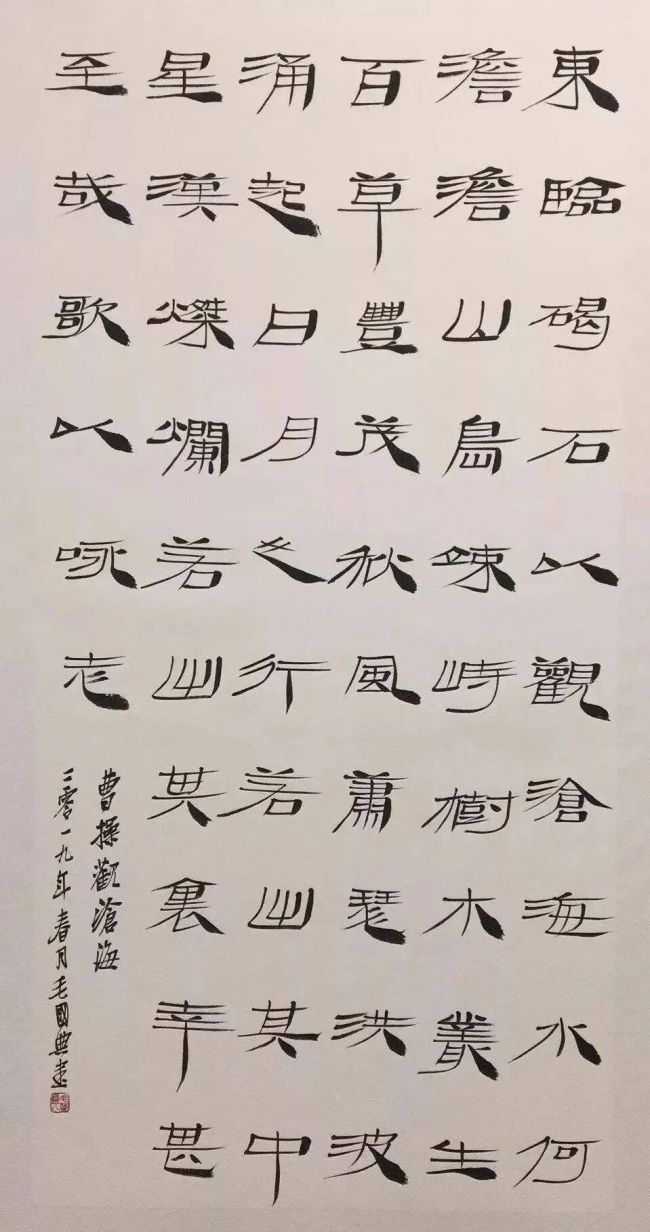 東臨碣石以觀滄海水何
澹澹山島竦峙樹木叢生
百草豐茂秋風蕭瑟洪波
涌起日月之行若出其中
星漢燦爛若出其裏幸甚
至哉歌以詠志
曹操觀滄海
二零一九年春月毛國典書